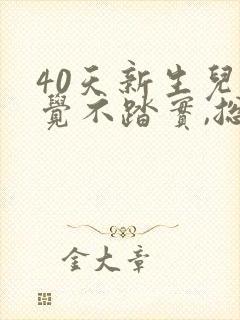 40天新生兒
覺不踏實,摠
金大章